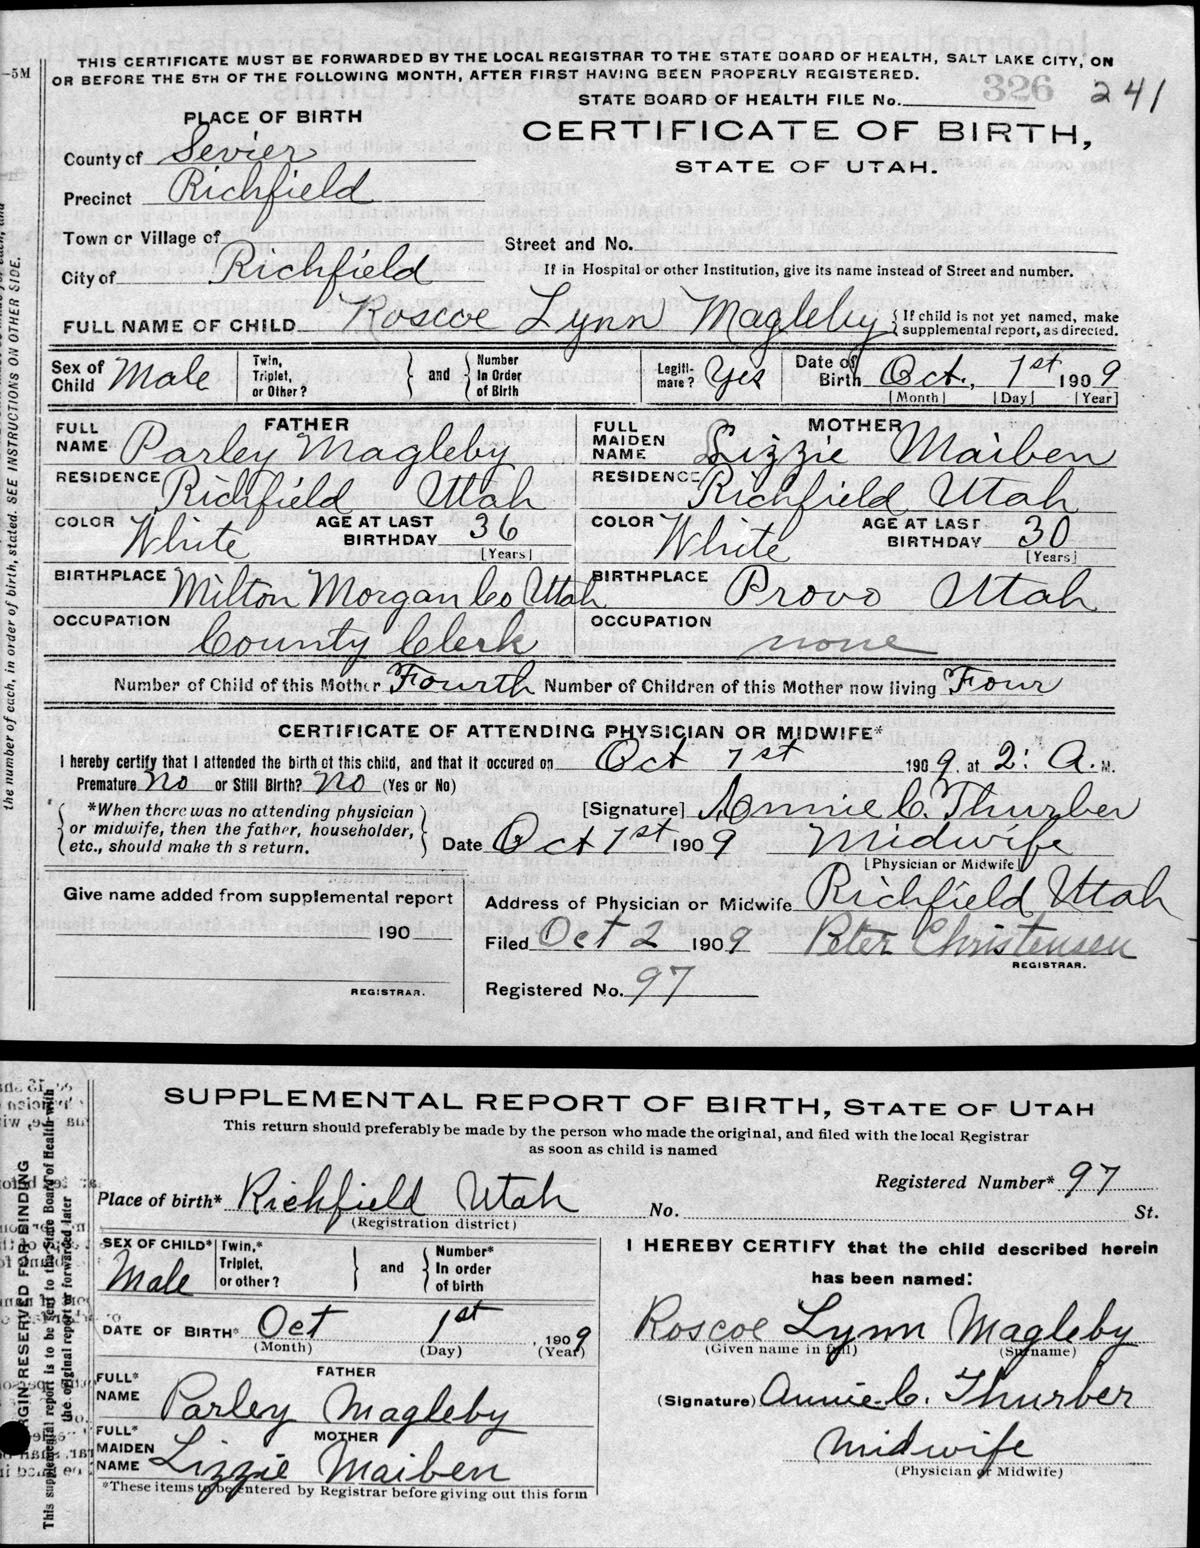 THIS CERTIFICATE MUST BE FORWARDED BY THE LOCAL REGISTRAR TO THE STATE BOARD OF HEALTH, SALT LAKE CITY, ON
OR BEFORE THE 5TH OF THE FOLLOWING MONTH, AFTER FIRST HAVING BEEN PROPERLY REGISTERED.
—5M
STATE BOARD OF HEALTH FILE No. 326 241
PLACE OF BIRTH
CERTIFICATE OF BIRTH,
STATE OF UTAH.
County of Sevier
Precinct Richfield
Town or Village of
Street and No.
City of Richfield
If in Hospital or other Institution, give its name instead of Street and number.
FULL NAME OF CHILD Roscoe Lynn Magleby { If child is not yet named, make
supplemental report, as directed.
Sex of Child Male Twin, Triplet, or Other? } and { Number In Order of Birth Legiti-mate? Yes Date of Birth Oct. 1st 1909
[Month] [Day] [Year]
FATHER
FULL NAME Parley Magleby
RESIDENCE Richfield Utah
COLOR White AGE AT LAST BIRTHDAY 36
[Years]
BIRTHPLACE Milton Morgan Co Utah
OCCUPATION County Clerk
MOTHER
FULL MAIDEN NAME Lizzie Maiben
RESIDENCE Richfield Utah
COLOR White AGE AT LAST BIRTHDAY 30
[Years]
BIRTHPLACE Provo Utah
OCCUPATION none
Number of Child of this Mother Fourth Number of Children of this Mother now living Four
CERTIFICATE OF ATTENDING PHYSICIAN OR MIDWIFE*
I hereby certify that I attended the birth of this child, and that it occured on Oct 1st 1909. at 2: A. M.
Premature No or Still Birth? No (Yes or No)
{ *When there was no attending physician
or midwife, then the father, householder,
etc., should make th s return. }
[Signature] Annie C. Thurber
Date Oct 1st 1909 Midwife
[Physician or Midwife]
Give name added from supplemental report
190
REGISTRAR.
Address of Physician or Midwife Richfield Utah
Filed Oct 2 1909 Peter Christensen
REGISTRAR.
Registered No. 97
the number of each, in order of birth, stated. SEE INSTRUCTIONS ON OTHER SIDE.
SUPPLEMENTAL REPORT OF BIRTH, STATE OF UTAH
This return should preferably be made by the person who made the original, and filed with the local Registrar
as soon as child is named
Registered Number* 97
Place of birth* Richfield Utah No. St.
(Registration district)
SEX OF CHILD* Male Twin,* Triplet, or other? } and { Number* In order of birth
DATE OF BIRTH* Oct 1st, 1909
(Month) (Day) (Year)
FATHER
FULL* NAME Parley Magleby
MOTHER
FULL* MAIDEN NAME Lizzie Maiben
*These items to be entered by Registrar before giving out this form
I HEREBY CERTIFY that the child described herein
has been named:
Roscoe Lynn Magleby
(Given name in full) (Surname)
(Signature) Annie C. Thurber
Midwife
(Physician or Midwife)
RGIN RESERVED FOR BINDING
This supplemental report is to be sent to the State Board of Health with
the original report or forwarded later